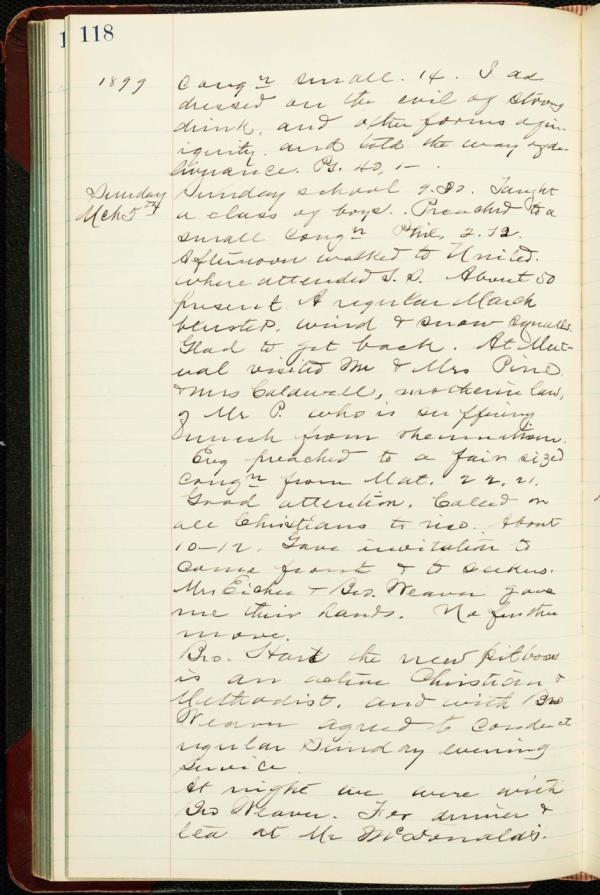 118
1899 Congn small. 14. I ad
dressed on the evil of strong
drink, and other forms of in-
iquity, and told the way of de-
liverance. Ps. 40, 1-.
Sunday Sunday school 9.30. Taught
Mch 5th a class of boys. Preached to a
small Congn Phil. 2.12.
Afternoon walked to United.
where attended S. S. About 50
present. A regular March
bluster, wind & snow squalls.
Glad to get back. At Mut-
ual visited Mr & Mrs Pirie
& Mrs Caldwell, mother in law,
of Mr P. who is suffering
much from rheumatism.
Evg preached to a fair sized
Congn from Mat. 22, 21.
Good attention. Called on
all Christians to rise. About
10-12. Gave invitation to
come front & to seekers.
Mrs Eicher & Bro. Weaver gave
me their hands. No further
move.
Bro. Hart the new pit boss
is an active Christian &
Methodist, and with Bro
Weaver agreed to conduct
regular Sunday evening
service.
At night we were with
Bro Weaver. For dinner &
tea at Mr McDonald's.